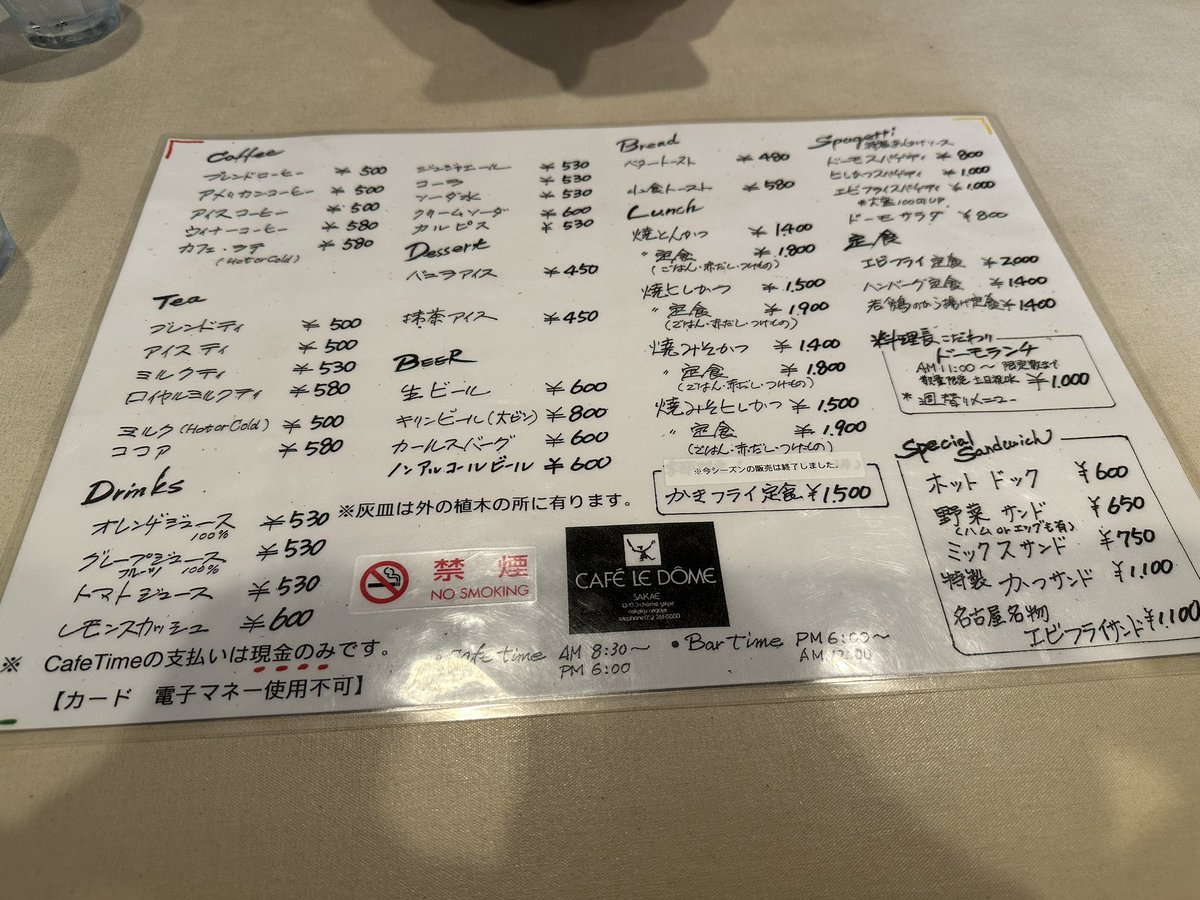 Coffee
ブレンドコーヒー ¥500
アメリカンコーヒー ¥500
アイスコーヒー ¥500
ウィナーコーヒー ¥580
カフェ・ラテ ¥580
(Hot or Cold)
Tea
ブレンドティ ¥500
アイスティ ¥500
ミルクティ ¥530
ロイヤルミルクティ ¥580
ミルク(Hot or Cold) ¥500
ココア ¥580
Drinks
オレンヂジュース ¥530
100%
グレープジュース ¥530
フルーツ 100%
トマトジュース ¥530
レモンスカッシュ ¥600
ジンジャエール ¥530
コーラ ¥530
ソーダ水 ¥530
クリームソーダ ¥600
カルピス ¥530
Dessert
バニラアイス ¥450
抹茶アイス ¥450
BEER
生ビール ¥600
キリンビール(大ビン) ¥800
カールスバーグ ¥600
ノンアルコールビール ¥600
※灰皿は外の植木の所に有ります。
禁煙
NO SMOKING
Bread
バタートースト ¥480
小倉トースト ¥580
Lunch
焼とんかつ ¥1400
〃定食 ¥1.800
(ごはん・赤だし・つけもの)
焼ヒレかつ ¥1.500
〃定食 ¥1900
(ごはん・赤だし・つけもの)
焼みそかつ ¥1.400
〃定食 ¥1.800
(ごはん・赤だし・つけもの)
焼みそヒレかつ ¥1.500
〃定食 ¥1.900
(ごはん・赤だし・つけもの)
※今シーズンの販売は終了しました。
かきフライ定食 ¥1.500
Spagetti
特製あんかけソース
ドーモスパゲティ ¥800
ヒレかつスパゲティ ¥1.000
エビフライスパゲティ ¥1.000
*大盛100円UP
ドーモサラダ ¥800
定食
エビフライ定食 ¥2000
ハンバーグ定食 ¥1400
若鶏のから揚げ定食 ¥1400
料理長こだわり
ドーモランチ
AM11:00〜 限定数まで
数量限定 土日祝休 ¥1.000
*週替りメニュー
Special
Sandwich
ホットドック ¥600
野菜サンド ¥650
(ハム or エッグも有)
ミックスサンド ¥750
特製かつサンド ¥1.100
名古屋名物
エビフライサンド ¥1.100
CAFÉ LE DÔME
SAKAE
※ CafeTimeの支払いは現金のみです。
【カード 電子マネー使用不可】
•Cafe time AM 8:30〜
PM 6:00
•Bar time PM 6:00〜
AM